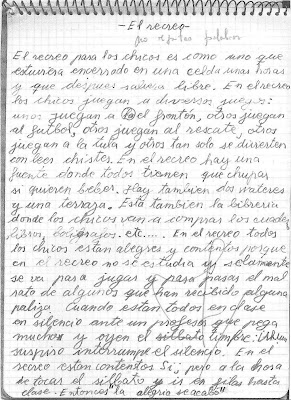 - El recreo -
El recreo para los chicos es como uno que
estuviera encerrado en una celda unas horas
y que después saliera libre. En el recreo
los chicos juegan a diversos juegos:
unos juegan a el frontón, otros juegan
al futbol, otros juegan al rescate, otros
juegan a la lula y otros tan solo se divierten
con leer chistes. En el recreo hay una
fuente donde todos tienen que chupar
si quieren beber. Hay tambien dos wateres
y una terraza. Está tambien la libreria
donde los chicos van a comprar los cuader
libros, boligrafos. etc.... En el recreo todos
los chicos estan alegres y contentos porque
en el recreo no se estudia y solamente
se va para jugar y para pasar el mal
rato de algunos que han recibido alguna
paliza. Cuando estan todos en clase
en silencio ante un profesor que pega
mucho y oyen el silbato timbre.
suspiro interrumpe el silencio. En el
recreo estan contentos Si, pero a la hora
de tocar el silbato y is en filas hasta
clase. Entonces la alegria se acabó"